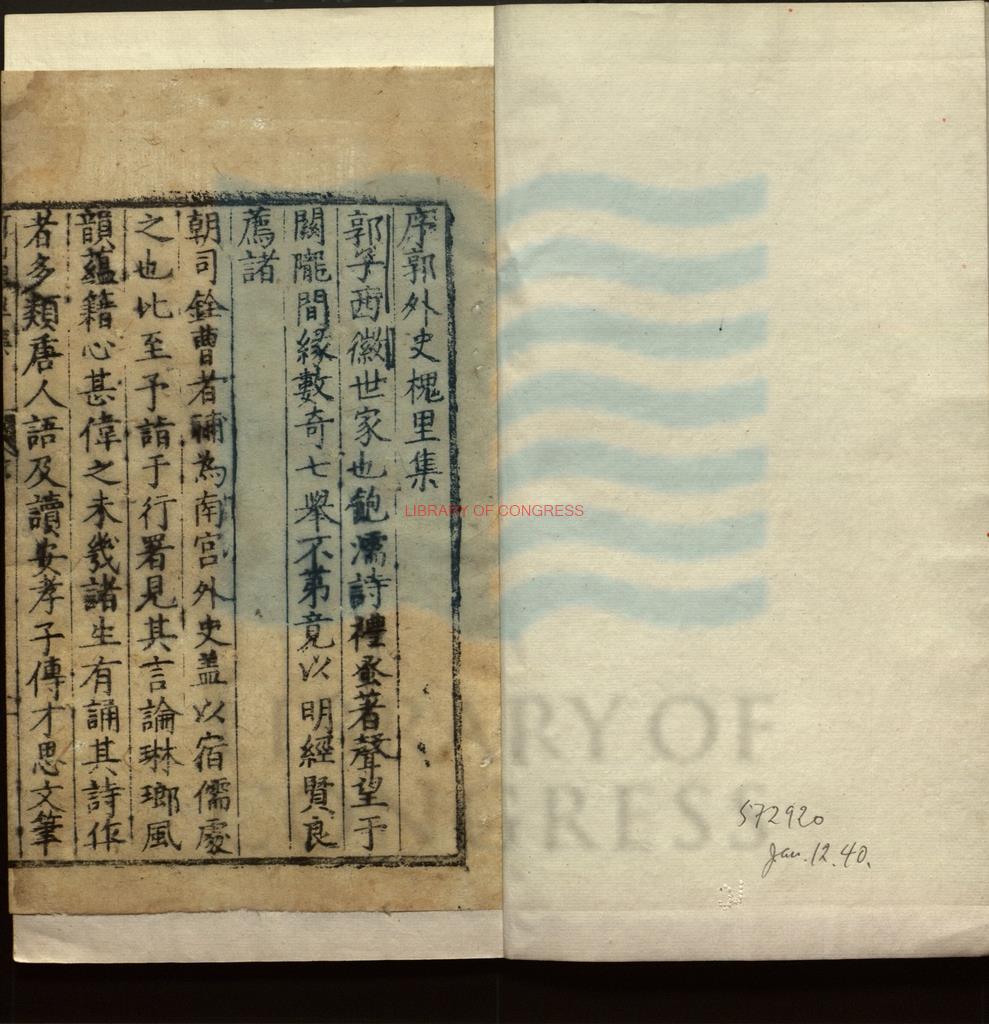 序郭外史槐里集
郭子西徽世家也飽濡詩禮蚤著聲望于
關隴間緣數奇七舉不第竟以明經賢良
薦諸
朝司銓曹者補為南宮外史盖以宿儒處
之也比至予詣于行署見其言論琳瑯風
韻蘊籍心甚偉之未幾諸生有誦其詩作
者多類唐人語及讀安孝子傳才思文筆
LIBRARY OF CONGRESS
LIBRARY OF
CONGRESS
572920
Jan. 12. 40.